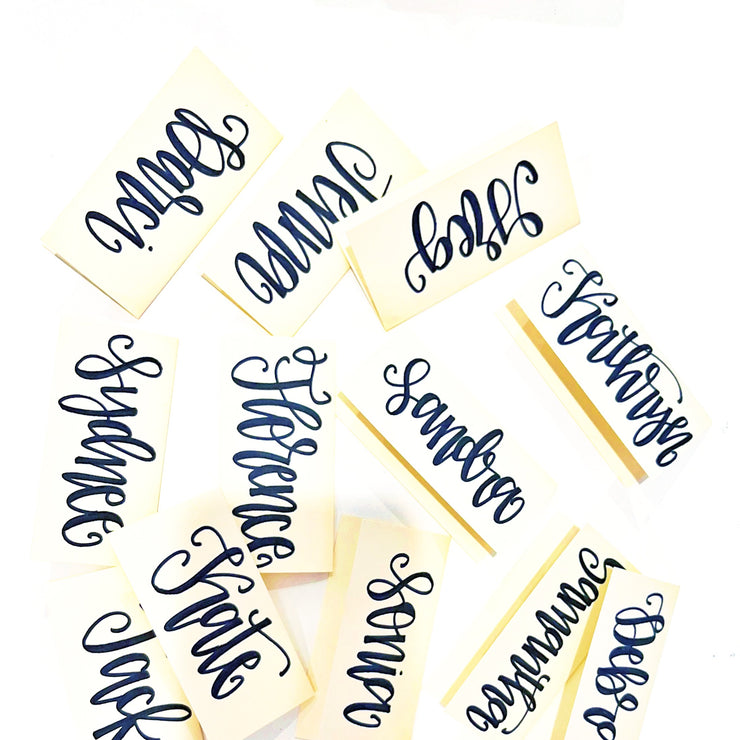 Jenna
Greg
Kathryn
Sydnee
Florence
Sandra
Kate
Sonia
Samantha
Jack
Debra